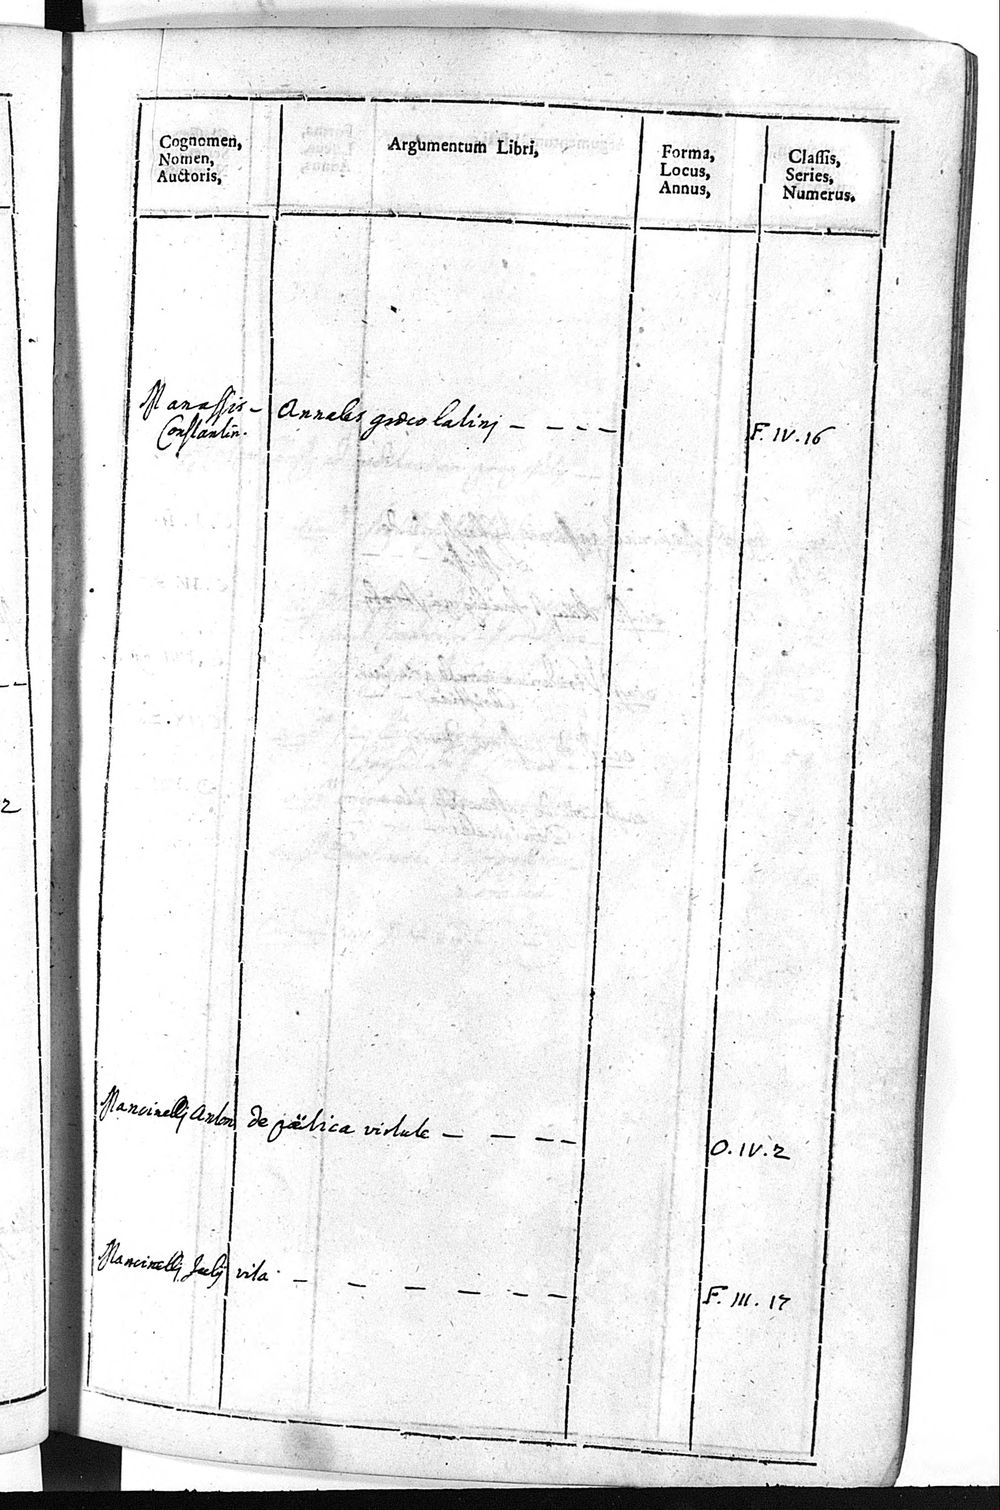 Cognomen,
Nomen,
Auctoris,
Argumentum Libri,
Forma,
Locus,
Annus,
Classis,
Series,
Numerus.
Manassis - Annales græcolatinj - - - - F. IV. 16
Constantin.
Mancinellj Anton de poëtica virtute - - - - O. IV. 2
Mancinellj Julij vita - - - - - - F. III. 17
2